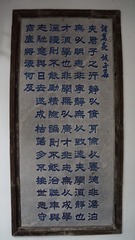 諸葛亮 誡子篇
夫君子之行靜以修身儉以養德非澹泊
無以明志非寧靜無以致遠夫學須靜也
才須學也非學無以廣才非志無以成學
慢則不能勵精險躁則不能治性年與
時馳意與日去遂成枯落多不接世悲守
窮廬將復何及